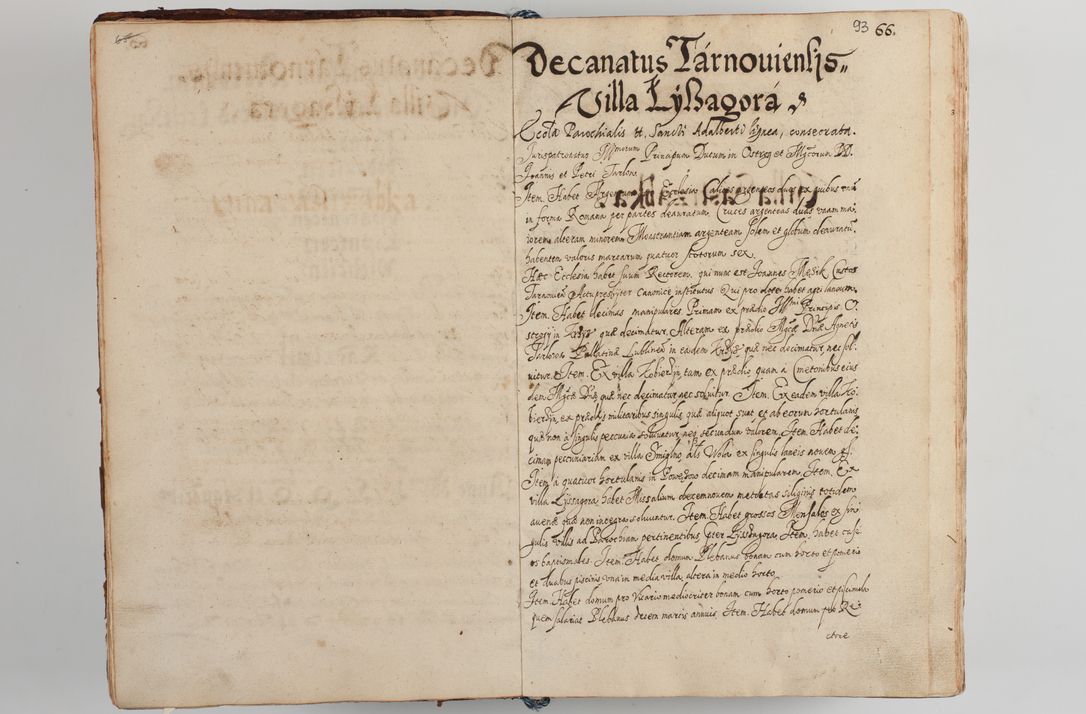 93 66.
Decanatus Tárnouiensis
Villa Lyßagorá
Eccła Parochialis tt. Sancti Adalberti lignea, consecrata.
Jurispatronatus Illmorum Principum Ducum in Ostrog et Mgcorum DD.
Joannis et Petri Tarlone
Item. Habet Argenteriam Ecclesia Calices argenteos duos ex quibus
in forma Romana per partes deauratum. Cruces argenteas duas vnam ma-
iorem alteram minorem Monstrantiam argenteam solem et globum deauratu
habentem valoris marcarum quatuor scotorum sex.
Hæc Ecclesia habet suum Rectorem, qui nunc est Joannes Custos
Tarnouien Actupresbyter canonicè institutus Qui pro dote habet agri laneum.
Item. Habet decimas manipulares. Primam ex prædio Illmi Principis O-
strogy in quæ decimatur. Alteram ex prædio Mgcæ Dnæ Agnetis
Tarlowa Pallatinæ Lublinen in eadem quæ nec decimatur, nec sol-
uitur. Item. Ex villa Kobierzin, tam ex prædio, quam a Cmetonibus eius
dem Mgcæ Dnæ quæ nec decimatur nec soluitur. Item. Ex eadem villa Ko-
bierzin, ex prædiis militaribus singulis quæ aliquot sunt et ab eorum hortulanis
quæ non à singulis pecuniis soluuntur, neq secundum valorem. Item. Habet de-
cimam pecuniariam ex villa Smigno, als Wola ex singulis laneis nouem
Item à quatuor hortulanis in decimam manipularem. Item. Ex
villa Lyssagora habet Missalium decemnouem metretas siliginis totidem
auenæ quæ non integrae soluuntur. Item. Habet grossos Mensales ex sin-
gulis villis ad Parochiam pertinentibus, præter Lyssagora. Item. habet
os baptismales. Item. Habet domum Plebanus bonam cum horto et pomerio
et duabus piscinis vna in media villa, altera in medio horto.
Item. Habet domum pro Vicario mediocriter bonam cum horto pomerio et piscinula
quem salariat Plebanus decem marcis annuis. Item. Habet domum pro Re-
ctore